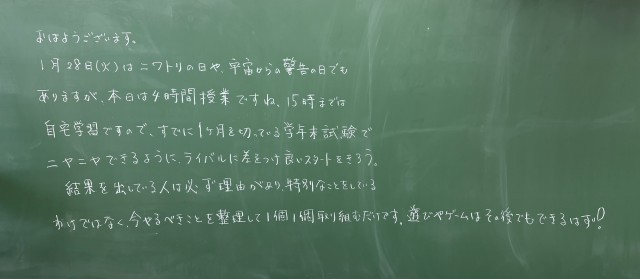 おはようございます。
1月28日(火)はニワトリの日や、宇宙からの警告の日でも
ありますが、本日は4時間授業ですね。15時までは
自宅学習ですので、すでに1ヶ月を切っている学年末試験で
ニヤニヤできるように、ライバルに差をつけ良いスタートをきろう。
結果を出している人は必ず理由があり、特別なことをしている
わけではなく、今やるべきことを整理して1個1個取り組むだけです。遊びやゲームはその後でもできるはず!